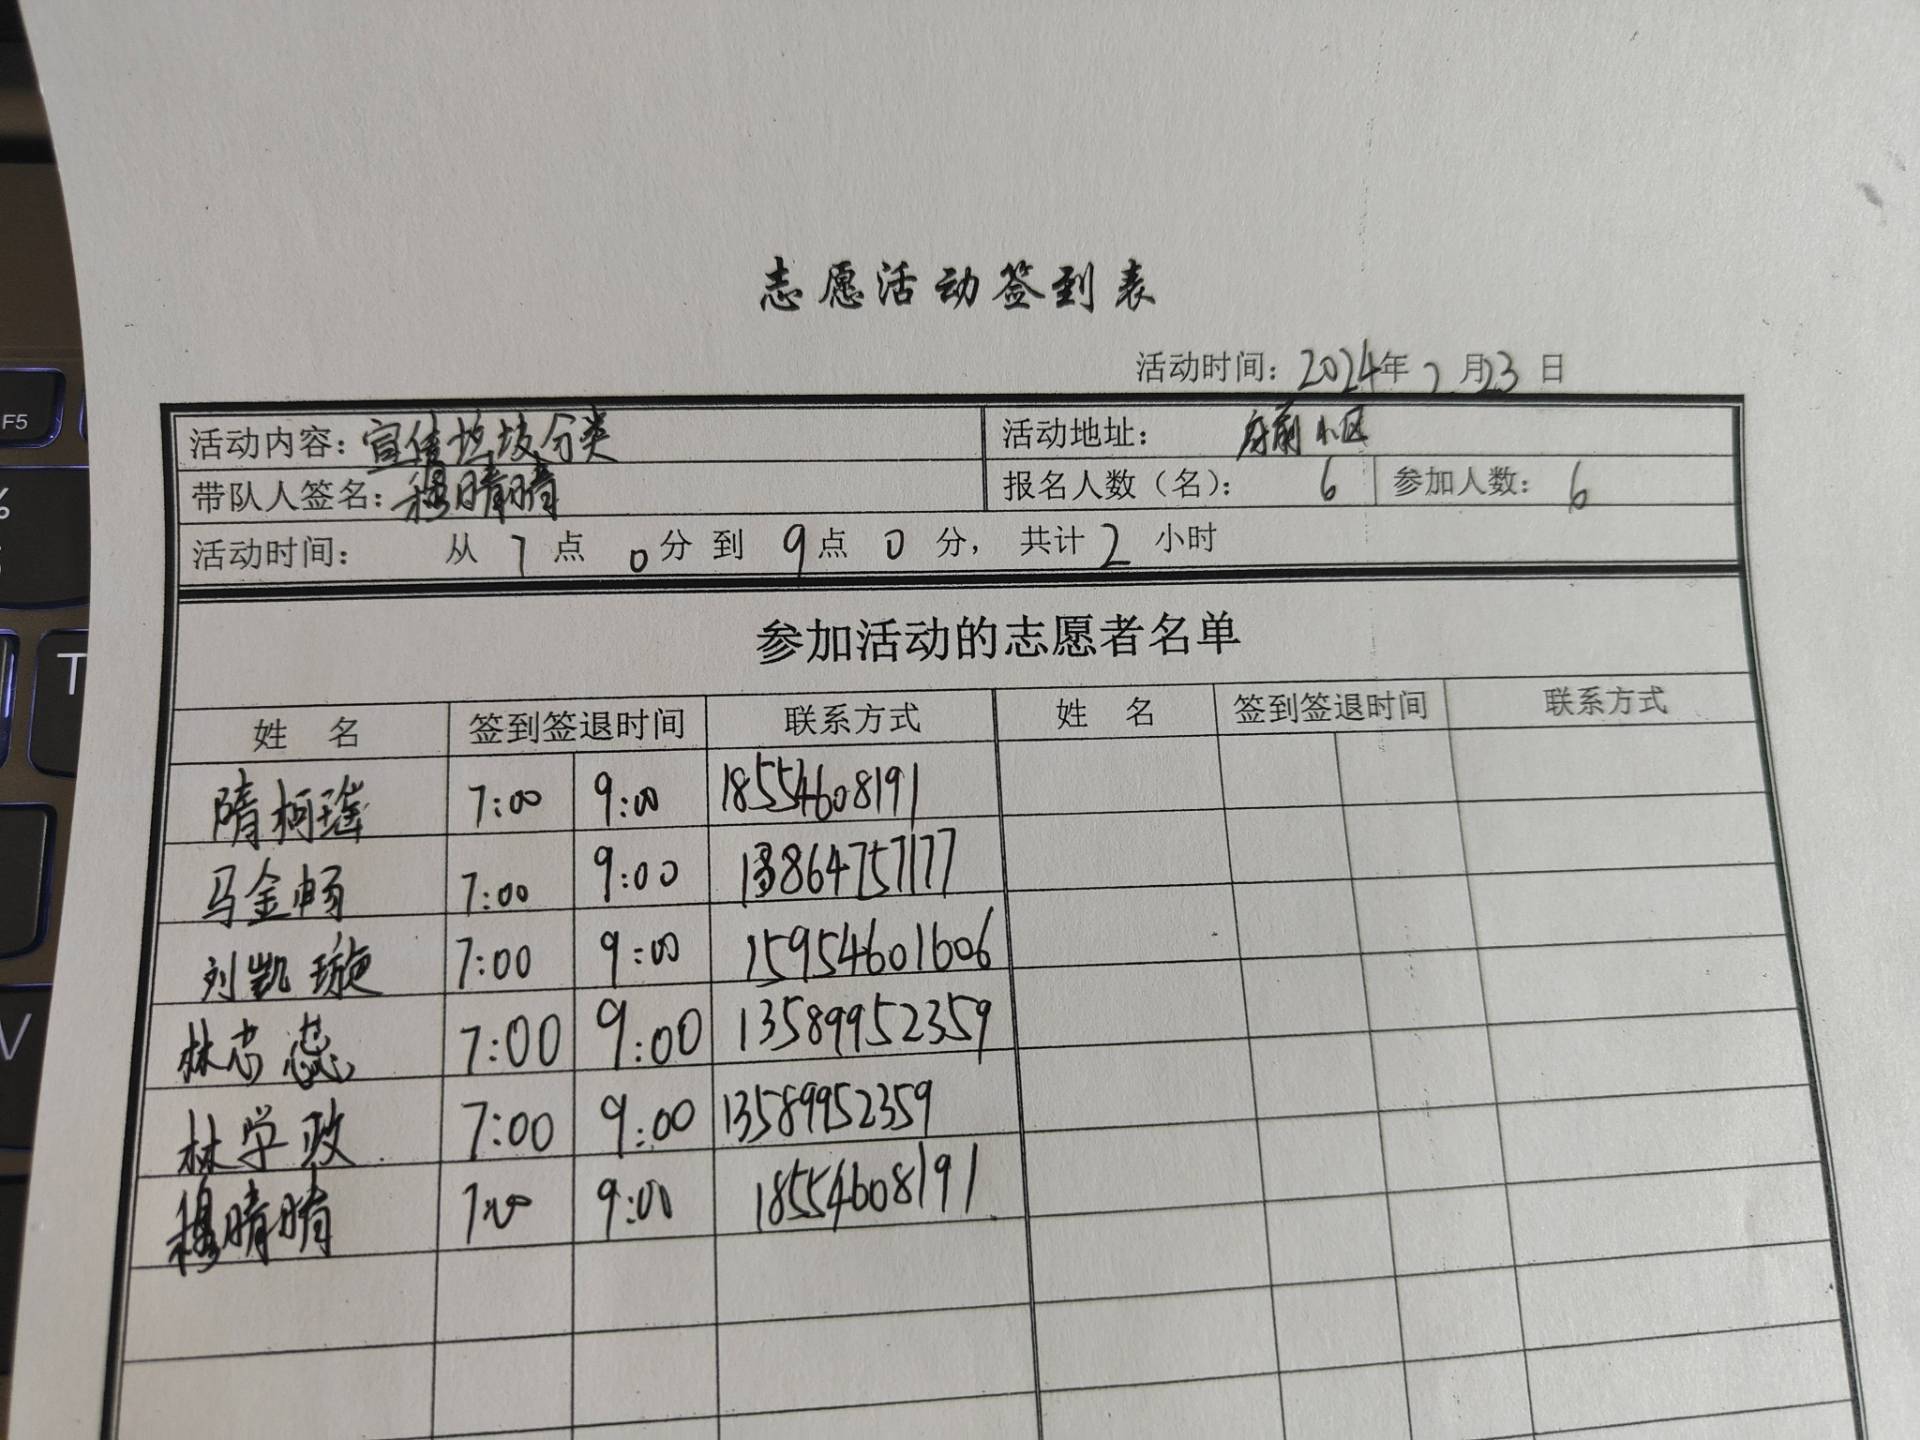 志愿活动签到表
活动时间：2024年7月23日
活动内容：宣传垃圾分类 活动地址：府前小区
带队人签名：穆晴晴 报名人数（名）：6 参加人数：6
活动时间： 从 7 点 0 分 到 9 点 0 分， 共计 2 小时
参加活动的志愿者名单
姓 名 签到签退时间 联系方式 姓 名 签到签退时间 联系方式
隋柯瑶 7:00 9:00 18554608191
马金畅 7:00 9:00 13864757177
刘凯璇 7:00 9:00 15954601606
林芯蕊 7:00 9:00 13589952359
林学政 7:00 9:00 13589952359
穆晴晴 7:00 9:00 18554608191
F5
%
5
T
V